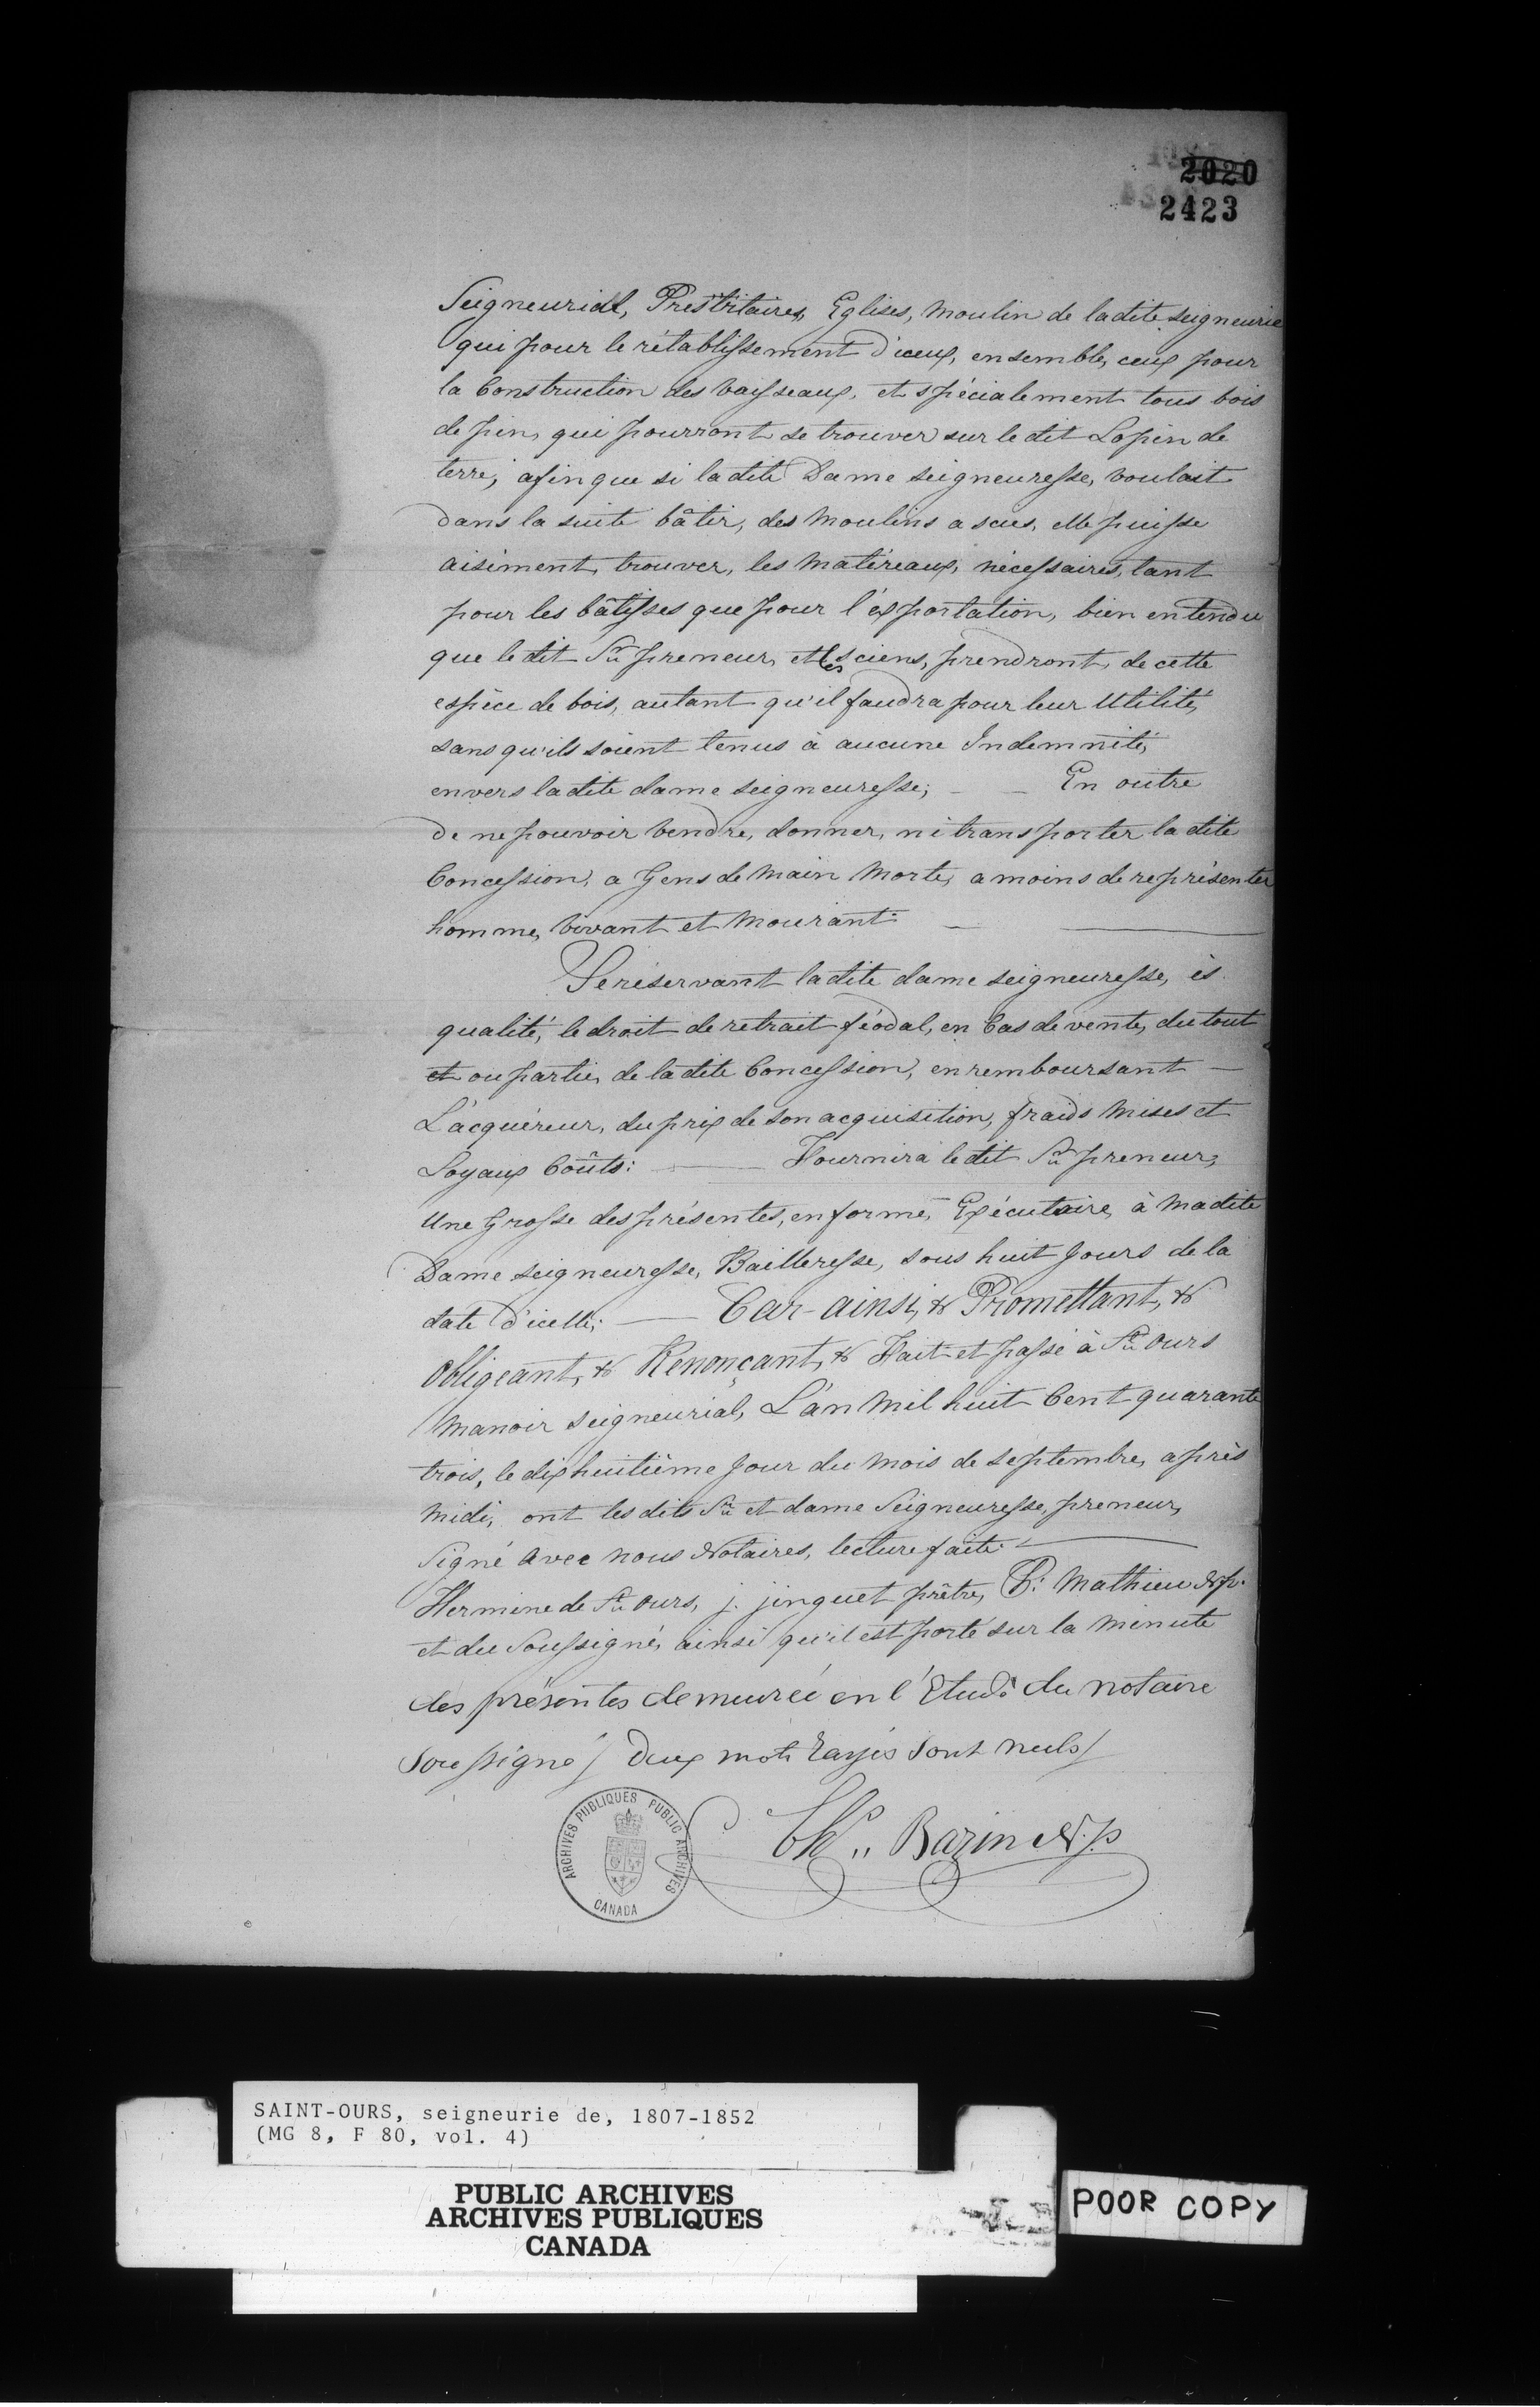 2020
2423
Seigneurial, Presbitaires, Eglises, Moulin de ladite seigneurie
qui pour le rétablissement d'iceux, ensemble, ceux pour
la Construction des Vaisseaux, et spécialement tous bois
de pin, qui pourront se trouver sur le dit Lopin de
terre, afin que si ladite Dame seigneuresse, voulait
dans la suite bâtir, des Moulins a scies, elle puisse
aisément, trouver, les Matéreaux, nécessaires, tant
pour les bâtisses que pour l'exportation, bien entendu
que le dit Sr. preneur, et les sciens, prendront, de cette
espèce de bois, autant qu'il faudra pour leur Utilité,
sans qu'ils soient tenus à aucune Indemnité,
envers ladite dame seigneuresse; — — En outre
de ne pouvoir Vendre, donner, ni transporter la dite
Concession, a Gens de Main Morte, a moins de représenter
homme, Vivant et Mourant. — —
Se réservant ladite dame seigneuresse, ès
qualité, le droit de retrait féodal, en Cas de vente, du tout
et ou partie, de ladite Concession, en remboursant —
L'acquéreur, du prix de son acquisition, fraids Mises et
Loyaux Coûts: — Fournira le dit Sr. preneur,
Une Grosse des présentes, en forme, Exécutaire, à Madite
Dame seigneuresse, Bailleresse, sous huit Jours de la
date d'icelle; — Car-ainsi, & Promettant, &
Obligeant, & Renonçant, & Fait et passé à St. Ours
Manoir seigneurial, L'an Mil huit Cent quarante
trois, le dix huitième Jour du Mois de septembre, après
Midi, ont les dits Sr. et dame Seigneuresse, preneur,
Signé Avec nous Notaires, lecture faite. —
Hermine de St. Ours, j. jinguet prêtre, P. Mathieu N.p.
et du Soussigné, ainsi qu'il est porté sur la Minute
des présentes demeurée en l'Etude du notaire
Soussigné / deux mots rayés sont nuls /
Chs.. Bazin N.p
ARCHIVES PUBLIQUES PUBLIC ARCHIVES
CANADA
SAINT-OURS, seigneurie de, 1807-1852
(MG 8, F 80, vol. 4)
PUBLIC ARCHIVES
ARCHIVES PUBLIQUES
CANADA
POOR COPY